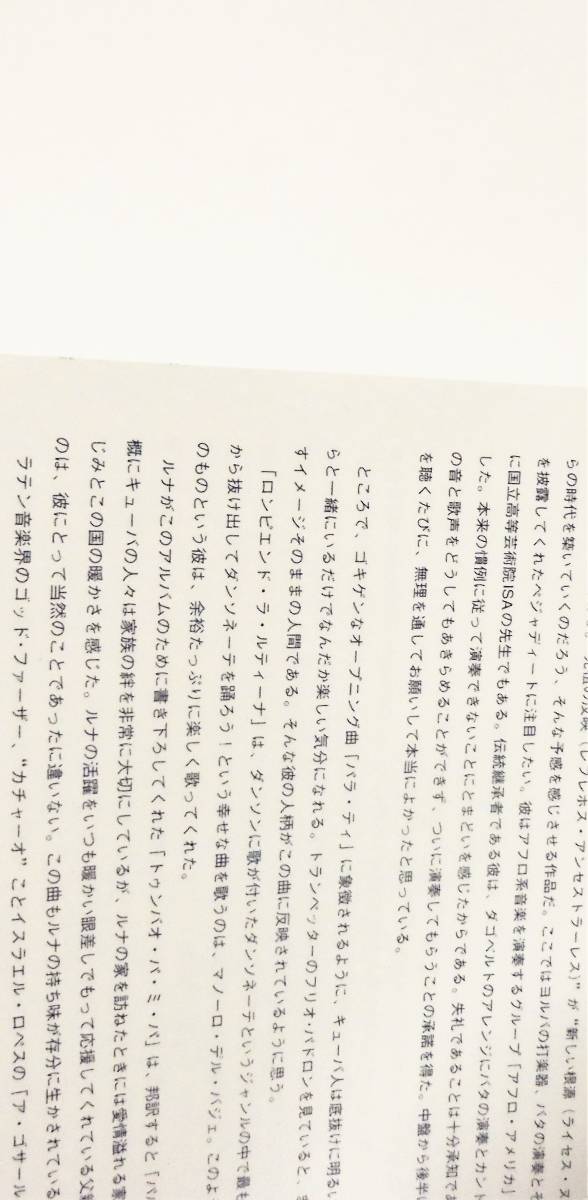 祖の反映（レフレホス・アンセストラーレス）”が“新しい根源（ライセス・
らの時代を築いていくのだろう、そんな予感を感じさせる作品だ。ここではヨルバの打楽器、バタの演奏と
を披露してくれたペジャディートに注目したい。彼はアフロ系音楽を演奏するグループ「アフロ・アメリカ
に国立高等芸術院ISAの先生でもある。伝統継承者である彼は、ダゴベルトのアレンジにバタの演奏とカン
した。本来の慣例に従って演奏できないことにとまどいを感じたからである。失礼であることは十分承知で
の音と歌声をどうしてもあきらめることができず、ついに演奏してもらうことの承諾を得た。中盤から後半
を聴くたびに、無理を通してお願いして本当によかったと思っている。
ところで、ゴキゲンなオープニング曲「パラ・ティ」に象徴されるように、キューバ人は底抜けに明るい
らと一緒にいるだけでなんだか楽しい気分になれる。トランペッターのフリオ・パドロンを見ていると、
すイメージそのままの人間である。そんな彼の人柄がこの曲に反映されているように思う。
「ロンピエンド・ラ・ルティーナ」は、ダンソンに歌が付いたダンソネーテというジャンルの中で最も
から抜け出してダンソネーテを踊ろう！という幸せな曲を歌うのは、マノーロ・デル・バジェ。このよ
のものという彼は、余裕たっぷりに楽しく歌ってくれた。
ルナがこのアルバムのために書き下ろしてくれた「トゥンバオ・パ・ミ・パ」は、邦訳すると「パパ
概にキューバの人々は家族の絆を非常に大切にしているが、ルナの家を訪ねたときには愛情溢れる家
じみとこの国の暖かさを感じた。ルナの活躍をいつも暖かい眼差しでもって応援してくれている父親
のは、彼にとって当然のことであったに違いない。この曲もルナの持ち味が存分に生かされている
ラテン音楽界のゴッド・ファーザー、“カチャーオ”ことイスラエル・ロペスの「ア・ゴサール